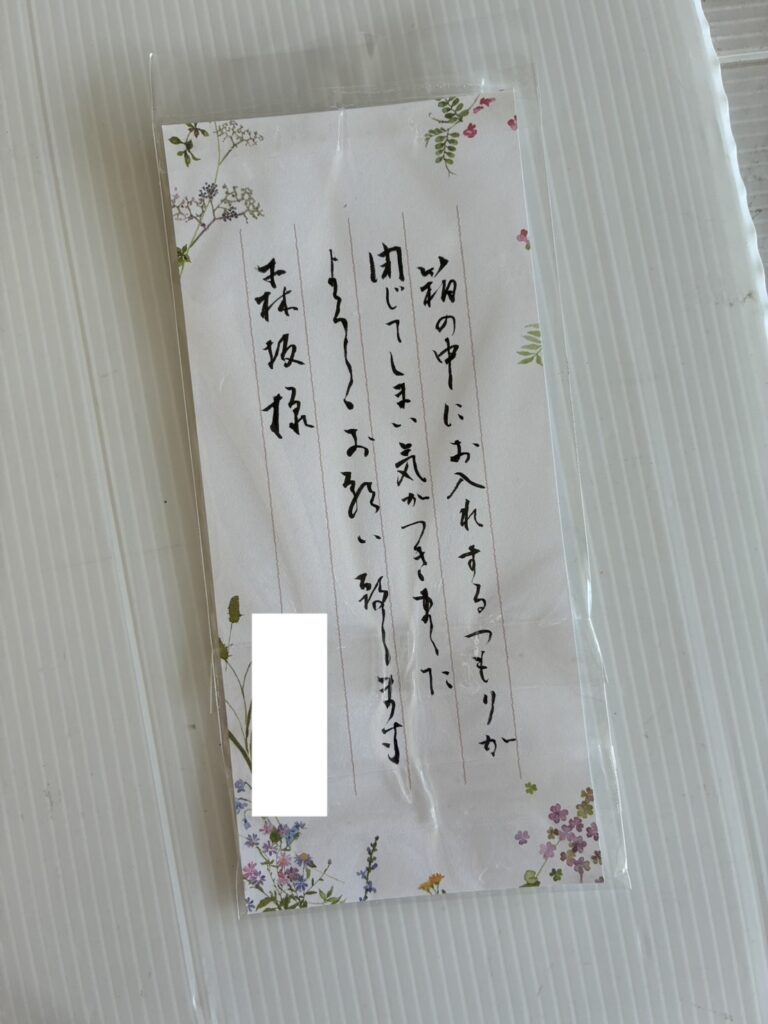 箱の中にお入れするつもりが
閉じてしまい気がつきました
よろしくお願い致します
森坂様